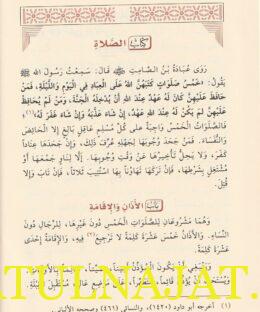 كتاب الصلاة
روى عبادة بن الصامت ﷺ قال: سمعت رسول الله ﷺ
يقول: «خمس صلوات كتبهن الله على العباد في اليوم والليلة، فمن
حافظ عليهن كان له عهد عند الله أن يدخله الجنة، ومن لم يحافظ
عليهن لم يكن له عهد عند الله، إن شاء عذبه وإن شاء غفر له»(١)؛
فالصلوات الخمس واجبة على كل مسلم عاقل بالغ إلا الحائض
والنفساء. فمن جحد وجوبها لجهله عرف ذلك، وإن جحدها عنادا
كفر، ولا يحل تأخيرها عن وقت وجوبها. إلا لناو جمعها أو
مشتغل بشرطها، فإن تركها تهاونا بها استتيب ثلاثا، فإن تاب وإلا
قتل.
باب الأذان والإقامة
وهما مشروعان للصلوات الخمس دون غيرها، للرجال دون
النساء. والأذان خمس عشرة كلمة لا ترجيع(٢) فيه، والإقامة إحدى
عشرة كلمة.
وينبغي أن يكون المؤذن أمينا، صيتا، عالما بالأوقات
ويستحب أن يؤذن قائما، متطهرا، على موضع عال، مستقبل القبلة
(١) أخرجه أبو داود (١٤٢٠)، والنسائي (٤٦١) وصححه الألباني.
ATULNAJAT.